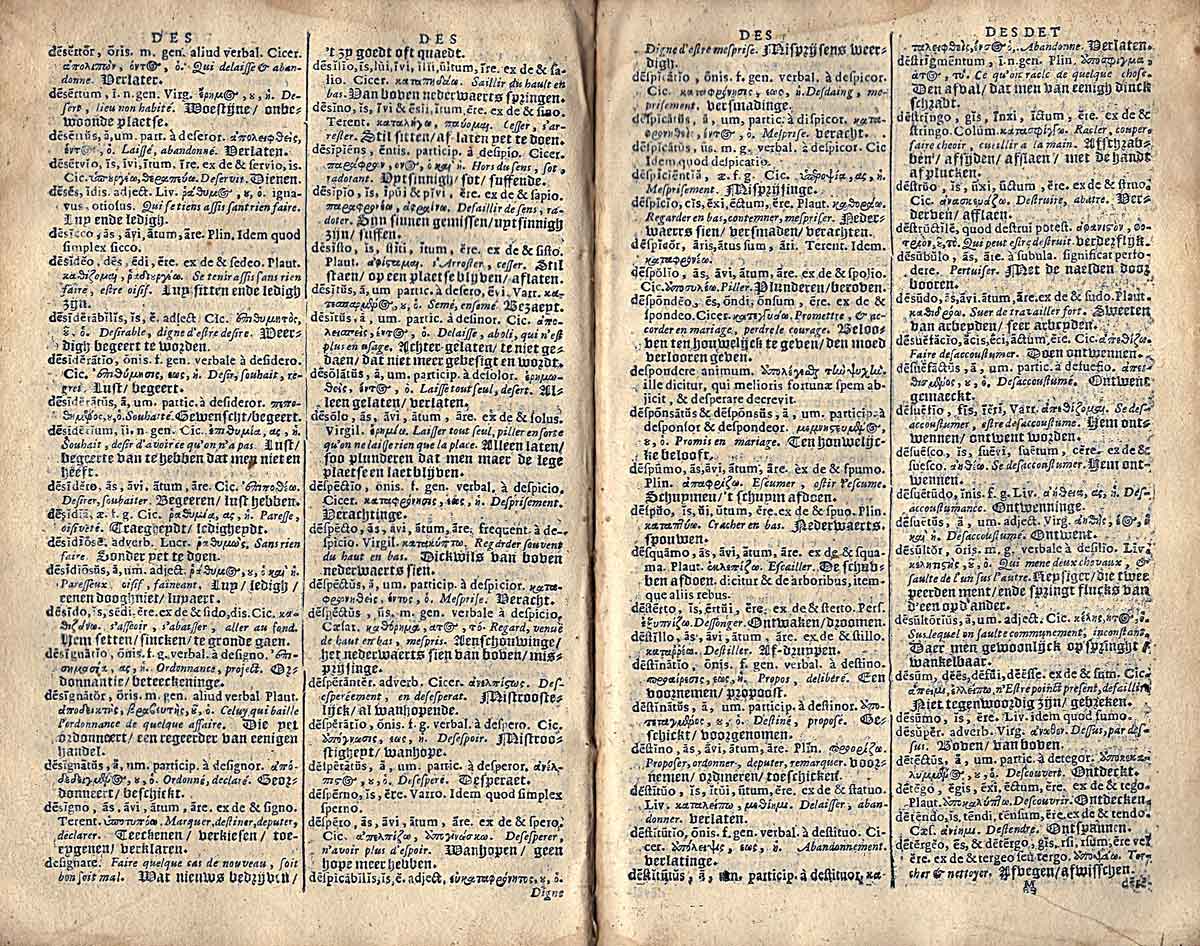 DES
dēsērtŏr, ōris. m. gen. aliud verbal. Cicer.
ἀπολειπών, ὁ. Qui delaisse & aban-
donne. Verlater.
dēsērtum, i. n. gen. Virg. ἔρημος, ὁ, ἡ. De-
sert, lieu non habité. Woestijne/ onbe-
woonde plaetse.
dēsērtŭs, ă, um. part. à deseror. ἀπολειφθείς,
ὁ. Laissé, abandonné. Verlaten.
dēsērvio, īs, īvi, ītum, īre. ex de & servio, is.
Cic. Deservir. Dienen.
dēsēs, ĭdis. adject. Liv. ῥάθυμος, ὁ, ἡ. igna-
vus, otiosus. Qui se tiens assis sans rien faire.
Luy ende ledigh.
dēsīcco, ās, āvi, ātum, āre. Plin. Idem quod
simplex sicco.
dēsĭdĕo, dēs, ēdi, ēre. ex de & sedeo. Plaut.
καθίζομαι, Se tenir assis sans rien
faire, estre oisif. Luy sitten ende ledigh
zijn.
dēsīdĕrābĭlĭs, ĭs, ĕ. adject. Cic. ἐπιθυμητός,
ὁ. Desirable, digne d'estre desire. Weer-
digh begeert te worden.
dēsīdĕrātĭo, ōnis. f. gen. verbale à desidero.
Cic. ἐπιθύμησις, εως, ἡ. Desir, souhait, re-
gret. Lust/ begeert.
dēsīdĕrātŭs, ă, um. particip. à desideror.
ὁ. Souhaité. Gewenscht/begeert.
dēsīdĕrium, ii. n. gen. Cic. ἐπιθυμία, ας, ἡ.
Souhait, desir d'avoir ce qu'on n'a pas. Lust/
begeerte van te hebben dat men niet en
heeft.
dēsīdĕro, ās, āvi, ātum, āre. Cic. ἐπιποθέω.
Desirer, souhaiter. Begeeren/ lust hebben.
dēsĭdĭă, æ. f. g. Cic. ῥαθυμία, ας, ἡ. Paresse,
oisiveté. Traegheydt/ ledigheydt.
dēsĭdĭōsē, adverb. Lucr. ῥαθύμως, Sans rien
faire. Sonder yet te doen.
dēsĭdĭōsŭs, ă, um. adject. ῥάθυμος, ὁ καὶ ἡ.
Paresseux, oisif, faineant. Luy/ ledigh/
eenen dooghniet/ luyaert.
dēsīdo, ĭs, sēdi, ĕre. ex de & sido, dis. Cic. κα-
θιζάνω. s'asseoir, s'abaisser, aller au fond.
Hem setten/ sincken/ te gronde gaen.
dēsīgnātĭo, ōnis. f. g. verbal. à designo. ἐπι-
σημασία, ας, ἡ. Ordonnance, project. Or-
donnantie/ beteeckeninge.
dēsīgnātŏr, ōris. m. gen. aliud verbal Plaut.
ἀποδεικτής, βραβευτής, ὁ. Celuy qui baille
l'ordonnance de quelque affaire. Die yet
ordonneert/ een regeerder van eenigen
handel.
dēsīgnātŭs, ă, um. particip. à designor. ἀπο-
ὁ. Ordonné, declaré. Geor-
donneert/ beschickt.
dēsīgno, ās, āvi, ātum, āre. ex de & signo.
Terent. ὑποτυπόω. Marquer, destiner, deputer,
declarer. Teeckenen/ verkiesen/ toe-
eygenen/ verklaren.
designare. Faire quelque cas de nouveau, soit
bon soit mal. Wat nieuws bedrijven/
DES
't zy goedt oft quaedt.
dēsĭlĭo, ĭs, lŭi, īvi, ĭlĭi, ūltum, īre. ex de & sa-
lio. Cicer. καταπηδάω. Saillir du hault en
bas. Van boven nederwaerts springen.
dēsĭno, ĭs, īvi & ĕsĭi, ĭtum, ĕre. ex de & sino.
Terent. καταλήγω, παύομαι. Cesser, s'ar-
rester. Stil sitten/ af-laten yet te doen.
dēsĭpĭēns, ēntis. particip. à desipio. Cicer.
παράφρων, ὁ καὶ ἡ. Hors du sens, sot,
radotant. Uytsinnigh/ sot/ suffende.
dēsĭpĭo, ĭs, ĭpŭi & pīvi, ĕre. ex de & sapio.
παραφρονέω, ἀφραίνω. Desaillir de sens, ra-
doter. Syn sinnen gemissen/ uytsinnigh
zijn/ suffen.
dēsīsto, ĭs, stĭti, ĭtum, ĕre. ex de & sisto.
Plaut. ἀφίσταμαι. s'Arrester, cesser. Stil
staen/ op een plaetse blijven/ aflaten.
dēsĭtŭs, ă, um partic. à desero, ēvi. Varr. κα-
ὁ. Semé, ensemé. Bezaeyt.
dēsĭtŭs, ă, um. partic. à desinor. Cic. ἀπο-
λειφθείς, ὁ. Delaisse, aboli, qui n'est
plus en usage. Achter-gelaten/ te niet ge-
daen/ dat niet meer gebesigt en wordt.
dēsōlātŭs, ă, um. particip. à desolor. ἐρημω-
θείς, ὁ. Laisse tout seul, desert. Al-
leen gelaten/ verlaten.
dēsōlo, ās, āvi, ātum, āre. ex de & solus.
Virgil. ἐρημόω. Laisser tout seul, piller en sorte
qu'on ne laisse rien que la place. Alleen laten/
soo plunderen dat men maer de lege
plaetse en laet blijven.
dēspēctĭo, ōnis. f. gen. verbal. à despicio.
Cicer. καταφρόνησις, εως, ἡ. Desprisement.
Verachtinge.
dēspēcto, ās, āvi, ātum, āre. frequent. à de-
spicio. Virgil. κατακύπτω. Regarder souvent
du haut en bas. Dickwils van boven
nederwaerts sien.
dēspēctŭs, ă, um. particip. à despicior. κατα-
φρονηθείς, έντος, ὁ. Mesprise. Veracht.
dēspēctŭs, ūs. m. gen. verbale à despicio.
Cæsar. καθόρημα, τό. Regard, venue
de haut en bas, mespris. Aenschouwinge/
het nederwaerts sien van boven/ mis-
prijsinge.
dēspērāntĕr. adverb. Cicer. ἀνελπίστως. Des-
esperéement, en desesperat. Mistrooste-
lijck/ al wanhopende.
dēspērātĭo, ōnis. f. g. verbal. à despero. Cic.
ἀπόγνωσις, εως, ἡ. Desespoir. Mistroo-
stigheyt/ wanhope.
dēspērātŭs, ă, um. partic. à despero, ἀνέλ-
πιστος, ὁ. Desesperé. Desperaet.
dēspērno, ĭs, ĕre. Varro. Idem quod simplex
sperno.
dēspēro, ās, āvi, ātum, āre. ex de & spero,
Cic. ἀπελπίζω, ἀπογινώσκω. Desesperer,
n'avoir plus d'espoir. Wanhopen/ geen
hope meer hebben.
dēspĭcābĭlĭs, ĭs, ĕ. adject. εὐκαταφρόνητος, ὁ.
Digne
DES
Digne d'estre mesprise. Misprijsens weer-
digh.
dēspĭcātĭo, ōnis. f. gen. verbal. à despicor.
Cic. καταφρόνησις, εως, ἡ. Desdaing, me-
sprisement. versmadinge.
dēspĭcātŭs, ă, um, partic. à dispicor. κατα-
φρονηθείς, ὁ. Mesprise. veracht.
dēspĭcātŭs, ūs. m. gen. verbal. à despicor. Cic
Idem quod despicatio.
dēspĭcĭēntĭă, æ. f. g. Cic. ὑπεροψία, ας, ἡ.
Mesprisement. Misprijsinge.
dēspĭcio, cĭs, ēxi, ēctum, ĕre. Plaut. καθοράω.
Regarder en bas, contemner, mespriser. Neder-
waerts sien/ versmaden/ verachten.
dēspĭcŏr, āris, atus sum, āri. Terent. Idem.
καταφρονέω.
dēspŏlĭo, ās, āvi, ātum, āre. ex de & spolio.
Cic. Piller. Plunderen/beroven.
dēspōndĕo, ēs, ōndi, ōnsum, ēre. ex de &
spondeo. Cicer. κατεγγυάω. Promettre, & ac-
corder en mariage, perdre le courage. Beloo-
ven ten houwelijck te geven/ den moed
verlooren geven.
despondere animum. ψυχὴν.
ille dicitur, qui melioris fortunæ spem ab-
jicit, & desperare decrevit.
dēspōnsātŭs & dēspōnsŭs, ă, um. particip. à
desponsor & despondeor.
ὁ. Promis en mariage. Ten houwelijc-
ke belooft.
dēspūmo, ās, āvi, ātum, āre. ex de & spumo.
Plin. ἀπαφρίζω. Escumer, ostir l'escume.
Schuymen/ 't schuym afdoen.
dēspŭo, ĭs, ŭi, ūtum, ĕre. ex de & spuo. Plin.
καταπτύω. Cracher en bas. Nederwaerts.
spouwen.
dēsquāmo, ās, āvi, ātum, āre. ex de & squa-
ma. Plaut. ἐκλεπίζω. Escailler. De schub-
ben afdoen. dicitur & de arboribus, item-
que aliis rebus.
dēstērto, ĭs, ērtŭi, ĕre. ex de & sterto. Pers.
ἐξυπνίζω. Dessonger. Ontwaken/droomen.
dēstīllo, ās, āvi, ātum, āre. ex de & stillo.
καταῤῥέω. Destiller. Af-druppen.
dēstĭnātĭo, ōnis. f. gen. verbal. à destino.
προαίρεσις, εως, ἡ. Propos, deliberé. Een
voornemen/ propoost.
dēstĭnātŭs, ă, um. particip. à destinor. ἀπο-
ὁ. Destiné, propose. Ge-
schickt/ voorgenomen.
dēstĭno, ās, āvi, ātum, āre. Plin. προορίζω.
Proposer, ordonner, deputer, remarquer. voor-
nemen/ ordineren/ toeschicken.
dēstĭtŭo, ĭs, ĭtŭi, ūtum, ĕre. ex de & statuo.
Liv. καταλείπω, μεθίημι. Delaisser, aban-
donner. verlaten.
dēstĭtūtĭo, ōnis. f. gen. verbal. à destituo. Ci-
cer. ἀπόλειψις, εως, ἡ. Abandonnement.
verlatinge.
dēstĭtūtŭs, ă, um. particip. à destituor. κα-
DES DET
ταλειφθείς, ὁ. Abandonne. Verlaten.
dēstrīgmēntum, i. n. gen. Plin.
τό. Ce qu'on racle de quelque chose.
Den afval/ dat men van eenigh dinck
schrabt.
dēstrīngo, gĭs, īnxi, īctum, ĕre. ex de &
stringo. Colum. Racler, couper,
faire cheoir, cueillir à la main. Afschrab-
ben/ afsnijden/ afslaen/ met de handt
af plucken.
dēstrŭo, ĭs, ūxi, ūctum, ĕre. ex de & struo.
Cic. ἀνασκευάζω. Destruire, abatre. Ver-
derven/ afslaen.
dēstrūctĭlĕ, quod destrui potest.
Qui peut estre destruit. verderflijk.
dēsŭbŭlo, ās, āre. à subula. significat perfo-
dere. Pertuiser. Met de naelden door
booren.
dēsūdo, ās, āvi, ātum, āre. ex de & sudo. Plaut.
καθιδρόω. Suer de travailler fort. Sweeten
van arbeyden/ seer arbeyden.
dēsŭēfăcĭo, ăcĭs, ēci, āctum, ĕre. Cic. ἀπεθίζω.
Faire desaccoustumer. Doen ontwennen.
dēsŭēfāctŭs, ă, um. partic. à desuefio.
ὁ. Desaccoustumé. Ontwent
gemaeckt.
dēsŭēfĭo, fīs, ĭĕri, Varr. ἀπεθίζομαι. Se desac-
accoustumer, estre desaccoustume. Hem ont-
wennen/ ontwent worden.
dēsŭēsco, ĭs, suēvi, suētum, cĕre. ex de &
suesco. Se desaccoustumer. Hem ont-
wennen.
dēsŭētūdo, ĭnis. f. g. Liv. ἀήθεια, ας, ἡ. Des-
accoustumance. Ontwenninge.
dēsŭētŭs, ă, um. adject. Virg. ἀήθης, ὁ καὶ
ἡ. Desaccoustumé. Ontwent.
dēsūltŏr, ōris. m. g. verbale à desilio. Liv.
κελητιστής, ὁ. Qui mene deux chevaux, &
saulte de l'un sus l'autre. Reysiger/ die twee
peerden ment/ ende springt flucks van
d'een op d'ander.
dēsūltōrĭus, ă, um. adject. Cic. κέλης, ὁ.
Sus lequel on saulte communement, inconstant.
Daer men gewoonlijck op springht/
wankelbaar.
dēsum, dĕĕs, dēfŭi, dĕēsse. ex de & sum. Cic.
ἄπειμι, ἐλλείπω, n'Estre point present, defaillir.
Niet tegenwoordig zijn/ gebreken.
dēsūmo, ĭs, ĕre. Liv. idem quod sumo.
dēsŭpĕr. adverb. Virg. ἄνωθεν. Dessus, par des-
sus. Boven/ van boven.
dētēctŭs, ă, um. partic. à detegor. ἀποκεκα-
ὁ. Descouvert. Ontdeckt.
dētĕgo, ĕgis, ēxi, ēctum, ĕre. ex de & tego.
Plaut. ἀποκαλύπτω. Descouvrir. Ontdecken.
dētēndo, ĭs, tēndi, tēnsum, ĕre. ex de & tendo.
Cæs. ἀνίημι. Destendre. Ontspannen.
dētērgĕo, ēs, & dētērgo, gĭs, rsi, rsum, ēre vel
ĕre. ex de & tergeo seu tergo. Tor-
cher & nettoyer. Afvegen/ afwisschen.
M
dētĕ-